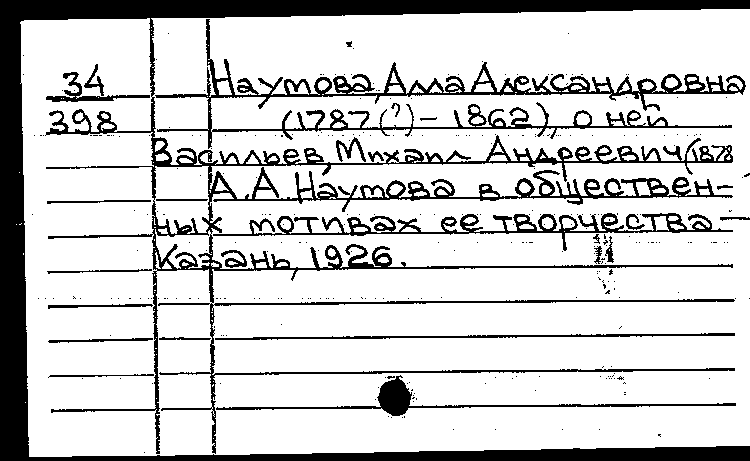 34 Наумова, Алла Александровна
398 (1787(?) – 1862), о ней
Васильев, Михаил Андреевич (1878
А.А. Наумова в обществен-
ных мотивах ее творчества. –
Казань, 1926.